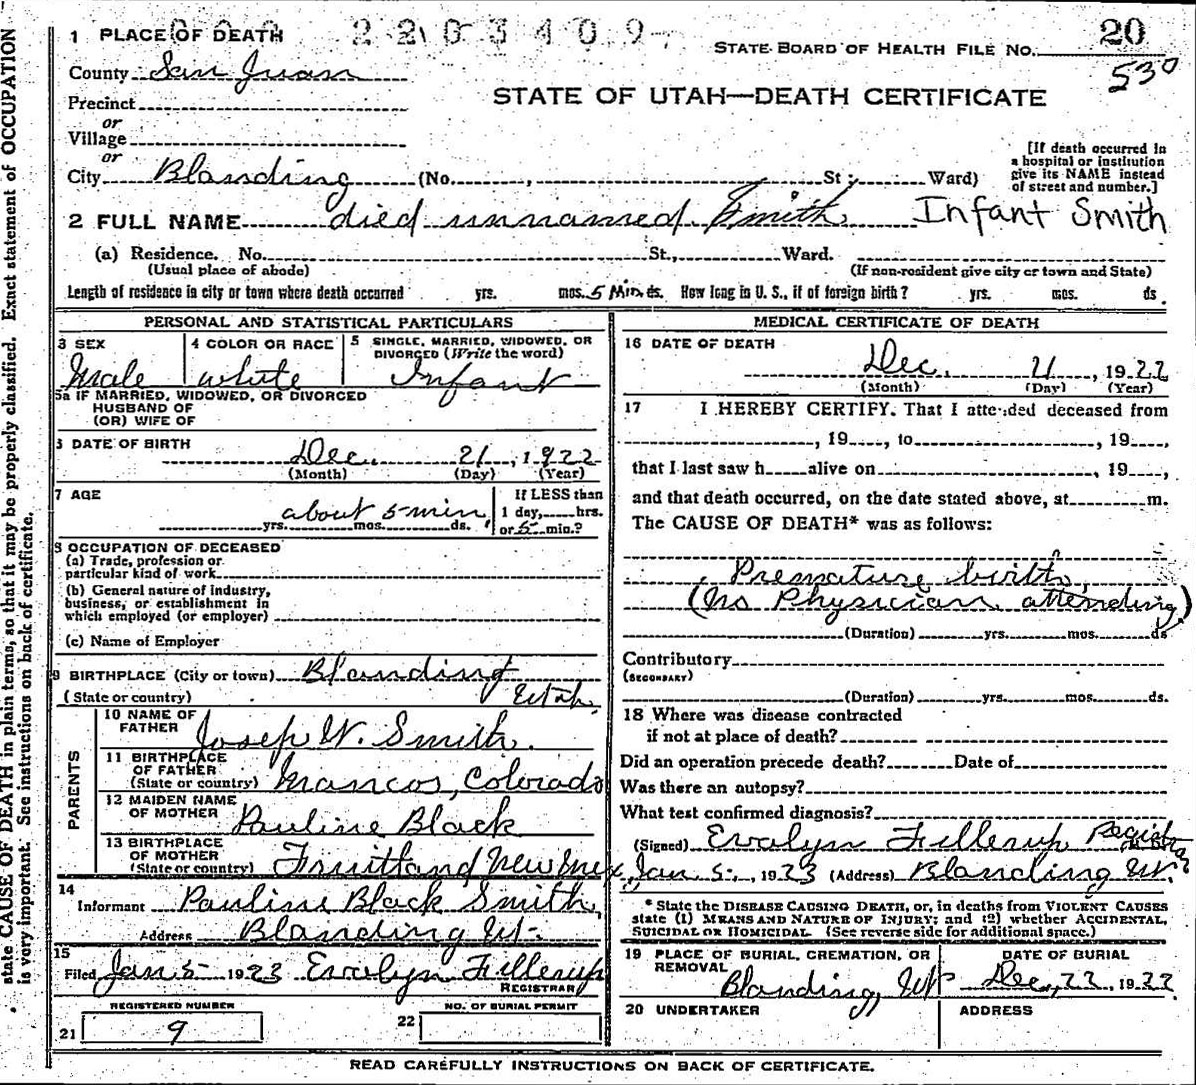 state CAUSE OF DEATH in plain terms, so that it may be properly classified. Exact statement of OCCUPATION
is very important. See instructions on back of certificate.
1 PLACE OF DEATH
2203409
STATE BOARD OF HEALTH FILE NO. 20
530
County San Juan
STATE OF UTAH—DEATH CERTIFICATE
Precinct
or
Village
or
City Blanding (No. , St.; Ward)
[If death occurred in
a hospital or institution
give its NAME instead
of street and number.]
2 FULL NAME died unnamed Smith Infant Smith
(a) Residence. No. St., Ward.
(Usual place of abode) (If non-resident give city or town and State)
Length of residence in city or town where death occurred yrs. mos. 5 Min ds. How long in U. S., if of foreign birth? yrs. mos. ds.
PERSONAL AND STATISTICAL PARTICULARS
3 SEX Male
4 COLOR OR RACE white
5 SINGLE, MARRIED, WIDOWED, OR
DIVORCED (Write the word)
Infant
5a IF MARRIED, WIDOWED, OR DIVORCED
HUSBAND OF
(OR) WIFE OF
6 DATE OF BIRTH
Dec. 21, 1922
(Month) (Day) (Year)
7 AGE
about 5 min
yrs. mos. ds.
If LESS than
1 day, hrs.
or 5 min.?
8 OCCUPATION OF DECEASED
(a) Trade, profession or
particular kind of work
(b) General nature of industry,
business, or establishment in
which employed (or employer)
(c) Name of Employer
9 BIRTHPLACE (City or town) Blanding
(State or country) Utah
PARENTS
10 NAME OF
FATHER Joseph W. Smith.
11 BIRTHPLACE
OF FATHER
(State or country) Mancos, Colorado
12 MAIDEN NAME
OF MOTHER Pauline Black
13 BIRTHPLACE
OF MOTHER
(State or country) Fruitland New Mex.
14
Informant Pauline Black Smith,
Address Blanding Ut.
15
Filed Jan 5 1923 Evalyn Fillerup
REGISTRAR
REGISTERED NUMBER
21 9
NO. OF BURIAL PERMIT
22
MEDICAL CERTIFICATE OF DEATH
16 DATE OF DEATH
Dec. 21, 1922
(Month) (Day) (Year)
17 I HEREBY CERTIFY. That I attended deceased from
, 19 , to , 19 ,
that I last saw h alive on , 19 ,
and that death occurred, on the date stated above, at m.
The CAUSE OF DEATH* was as follows:
Premature birth,
(No Physician attending)
(Duration) yrs. mos. ds
Contributory
(SECONDARY)
(Duration) yrs. mos. ds.
18 Where was disease contracted
if not at place of death?
Did an operation precede death? Date of
Was there an autopsy?
What test confirmed diagnosis?
(Signed) Evalyn Fillerup Registrar
Jan 5, 1923 (Address) Blanding Ut.
* State the DISEASE CAUSING DEATH, or, in deaths from VIOLENT CAUSES
state (1) MEANS AND NATURE OF INJURY; and (2) whether ACCIDENTAL,
SUICIDAL OR HOMICIDAL. (See reverse side for additional space.)
19 PLACE OF BURIAL, CREMATION, OR
REMOVAL
Blanding, Ut
DATE OF BURIAL
Dec. 22, 1922
20 UNDERTAKER
ADDRESS
READ CAREFULLY INSTRUCTIONS ON BACK OF CERTIFICATE.